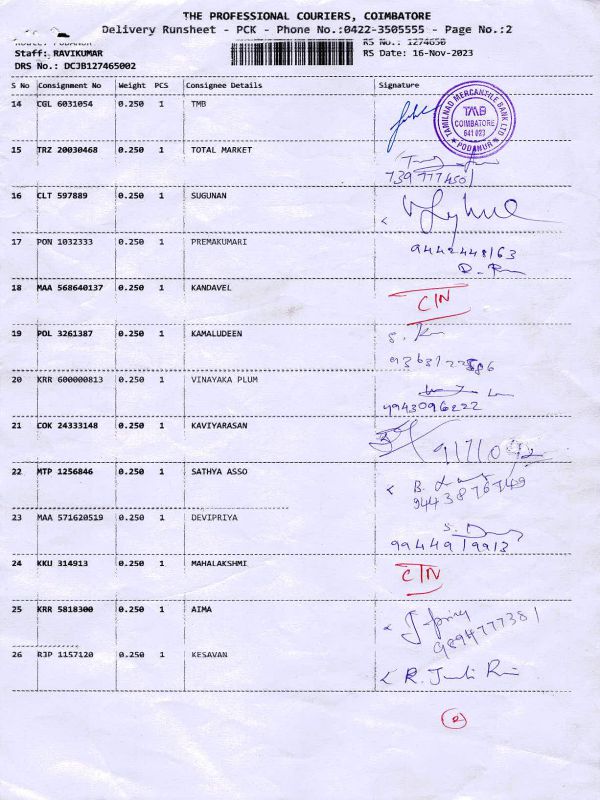 THE PROFESSIONAL COURIERS, COIMBATORE
Delivery Runsheet - PCK - Phone No.:0422-3505555 - Page No.:2
RS No.: 1274650
Staff: RAVIKUMAR RS Date: 16-Nov-2023
DRS No.: DCJB127465002
S No Consignment No Weight PCS Consignee Details Signature
14 CGL 6031054 0.250 1 TMB
TAMILNAD MERCANTILE BANK LTD
TMB
COIMBATORE
641 023
PODANUR
15 TRZ 20030468 0.250 1 TOTAL MARKET
16 CLT 597889 0.250 1 SUGUNAN
17 PON 1032333 0.250 1 PREMAKUMARI
9442448163
18 MAA 568640137 0.250 1 KANDAVEL
C/N
19 POL 3261387 0.250 1 KAMALUDEEN
20 KRR 600000813 0.250 1 VINAYAKA PLUM
9943096222
21 COK 24333148 0.250 1 KAVIYARASAN
22 MTP 1256846 0.250 1 SATHYA ASSO
9443876749
23 MAA 571620519 0.250 1 DEVIPRIYA
9944919913
24 KKU 314913 0.250 1 MAHALAKSHMI
C/N
25 KRR 5818300 0.250 1 AIMA
9894777381
26 RJP 1157120 0.250 1 KESAVAN